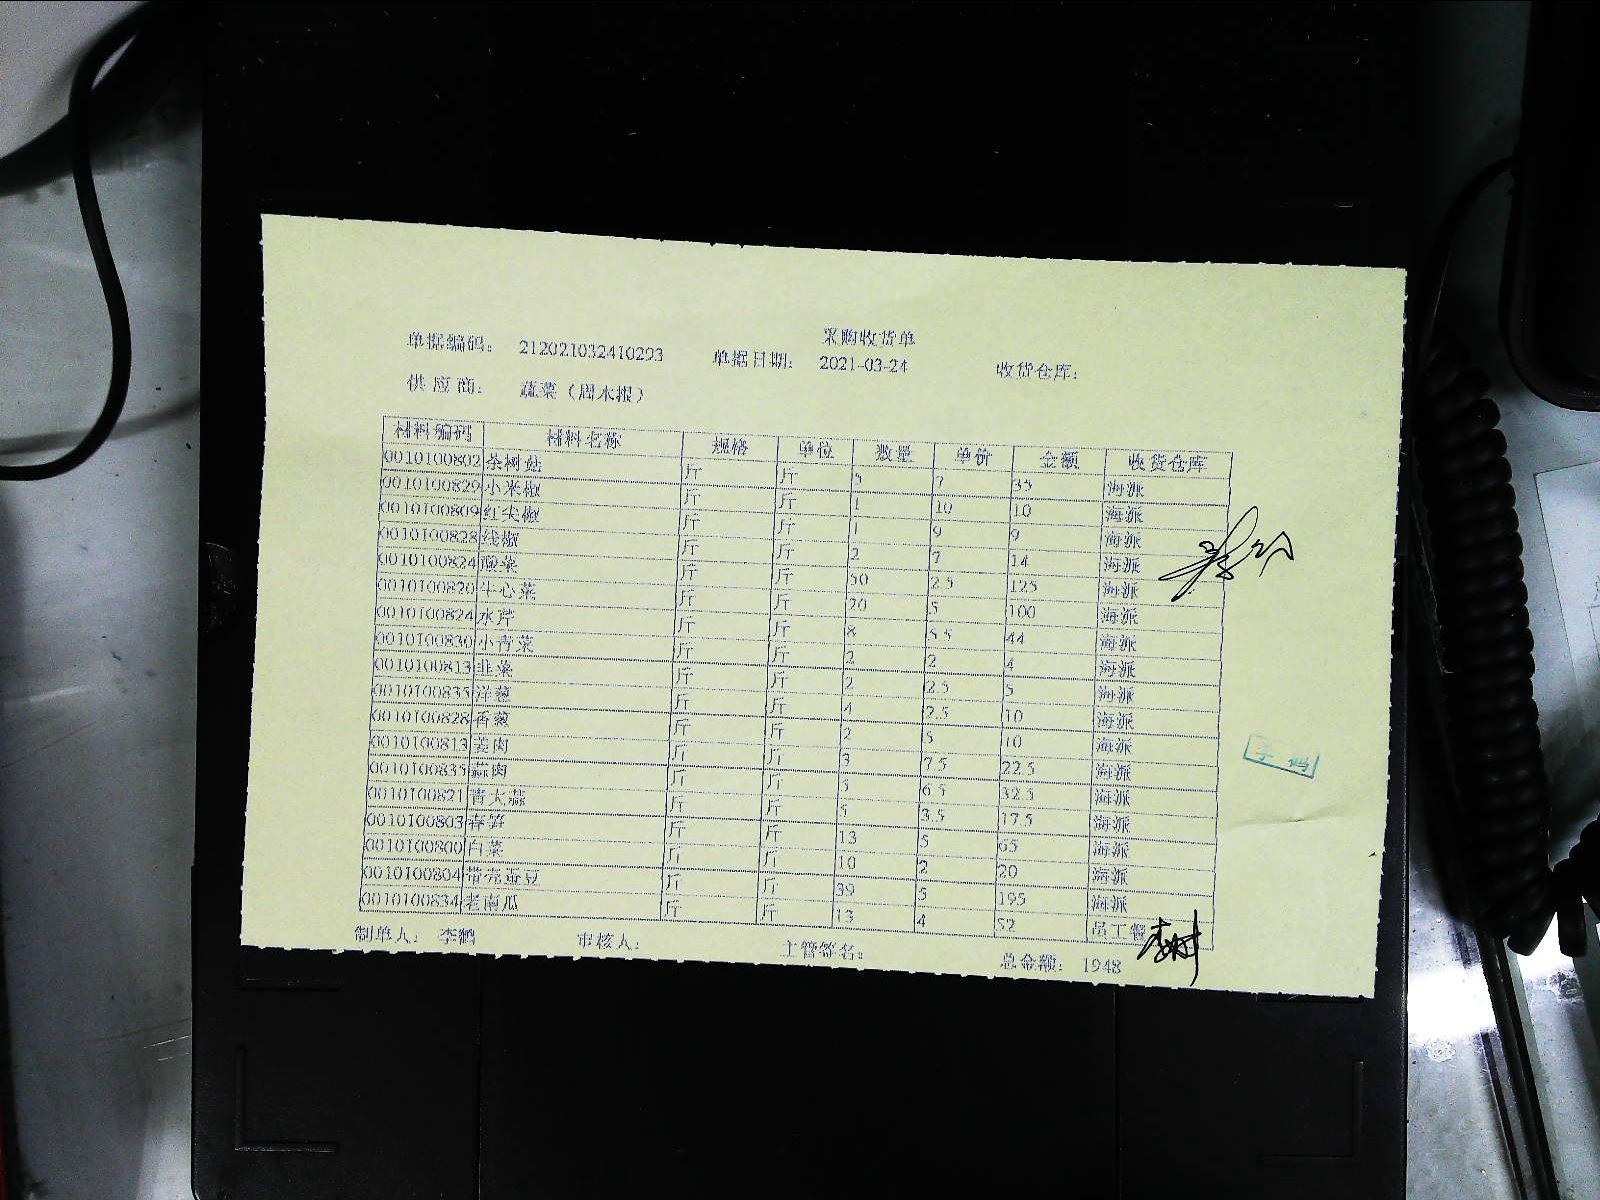 采购收货单
单据编码： 212021032410293 单据日期： 2021-03-24 收货仓库：
供应商： 蔬菜（周木报）
材料编码 材料名称 规格 单位 数量 单价 金额 收货仓库
0010100802 茶树菇 斤 斤 5 7 35 海派
0010100829 小米椒 斤 斤 1 10 10 海派
0010100809 红尖椒 斤 斤 1 9 9 海派
0010100828 线椒 斤 斤 2 7 14 海派
0010100824 斤 斤 50 2.5 125 海派
0010100820 牛心菜 斤 斤 20 5 100 海派
0010100824 水芹 斤 斤 8 5.5 44 海派
0010100830 小青菜 斤 斤 2 2 4 海派
0010100813 韭菜 斤 斤 2 2.5 5 海派
0010100835 洋葱 斤 斤 4 2.5 10 海派
0010100828 香葱 斤 斤 2 5 10 海派
0010100813 姜肉 斤 斤 3 7.5 22.5 海派
0010100835 蒜肉 斤 斤 5 6.5 32.5 海派
0010100821 青大蒜 斤 斤 5 3.5 17.5 海派
0010100803 春笋 斤 斤 13 5 65 海派
0010100800 白菜 斤 斤 10 2 20 海派
0010100804 带壳蚕豆 斤 斤 39 5 195 海派
0010100834 老南瓜 斤 斤 13 4 52 员工餐
制单人： 李鹤 审核人： 主管签名： 总金额： 1948